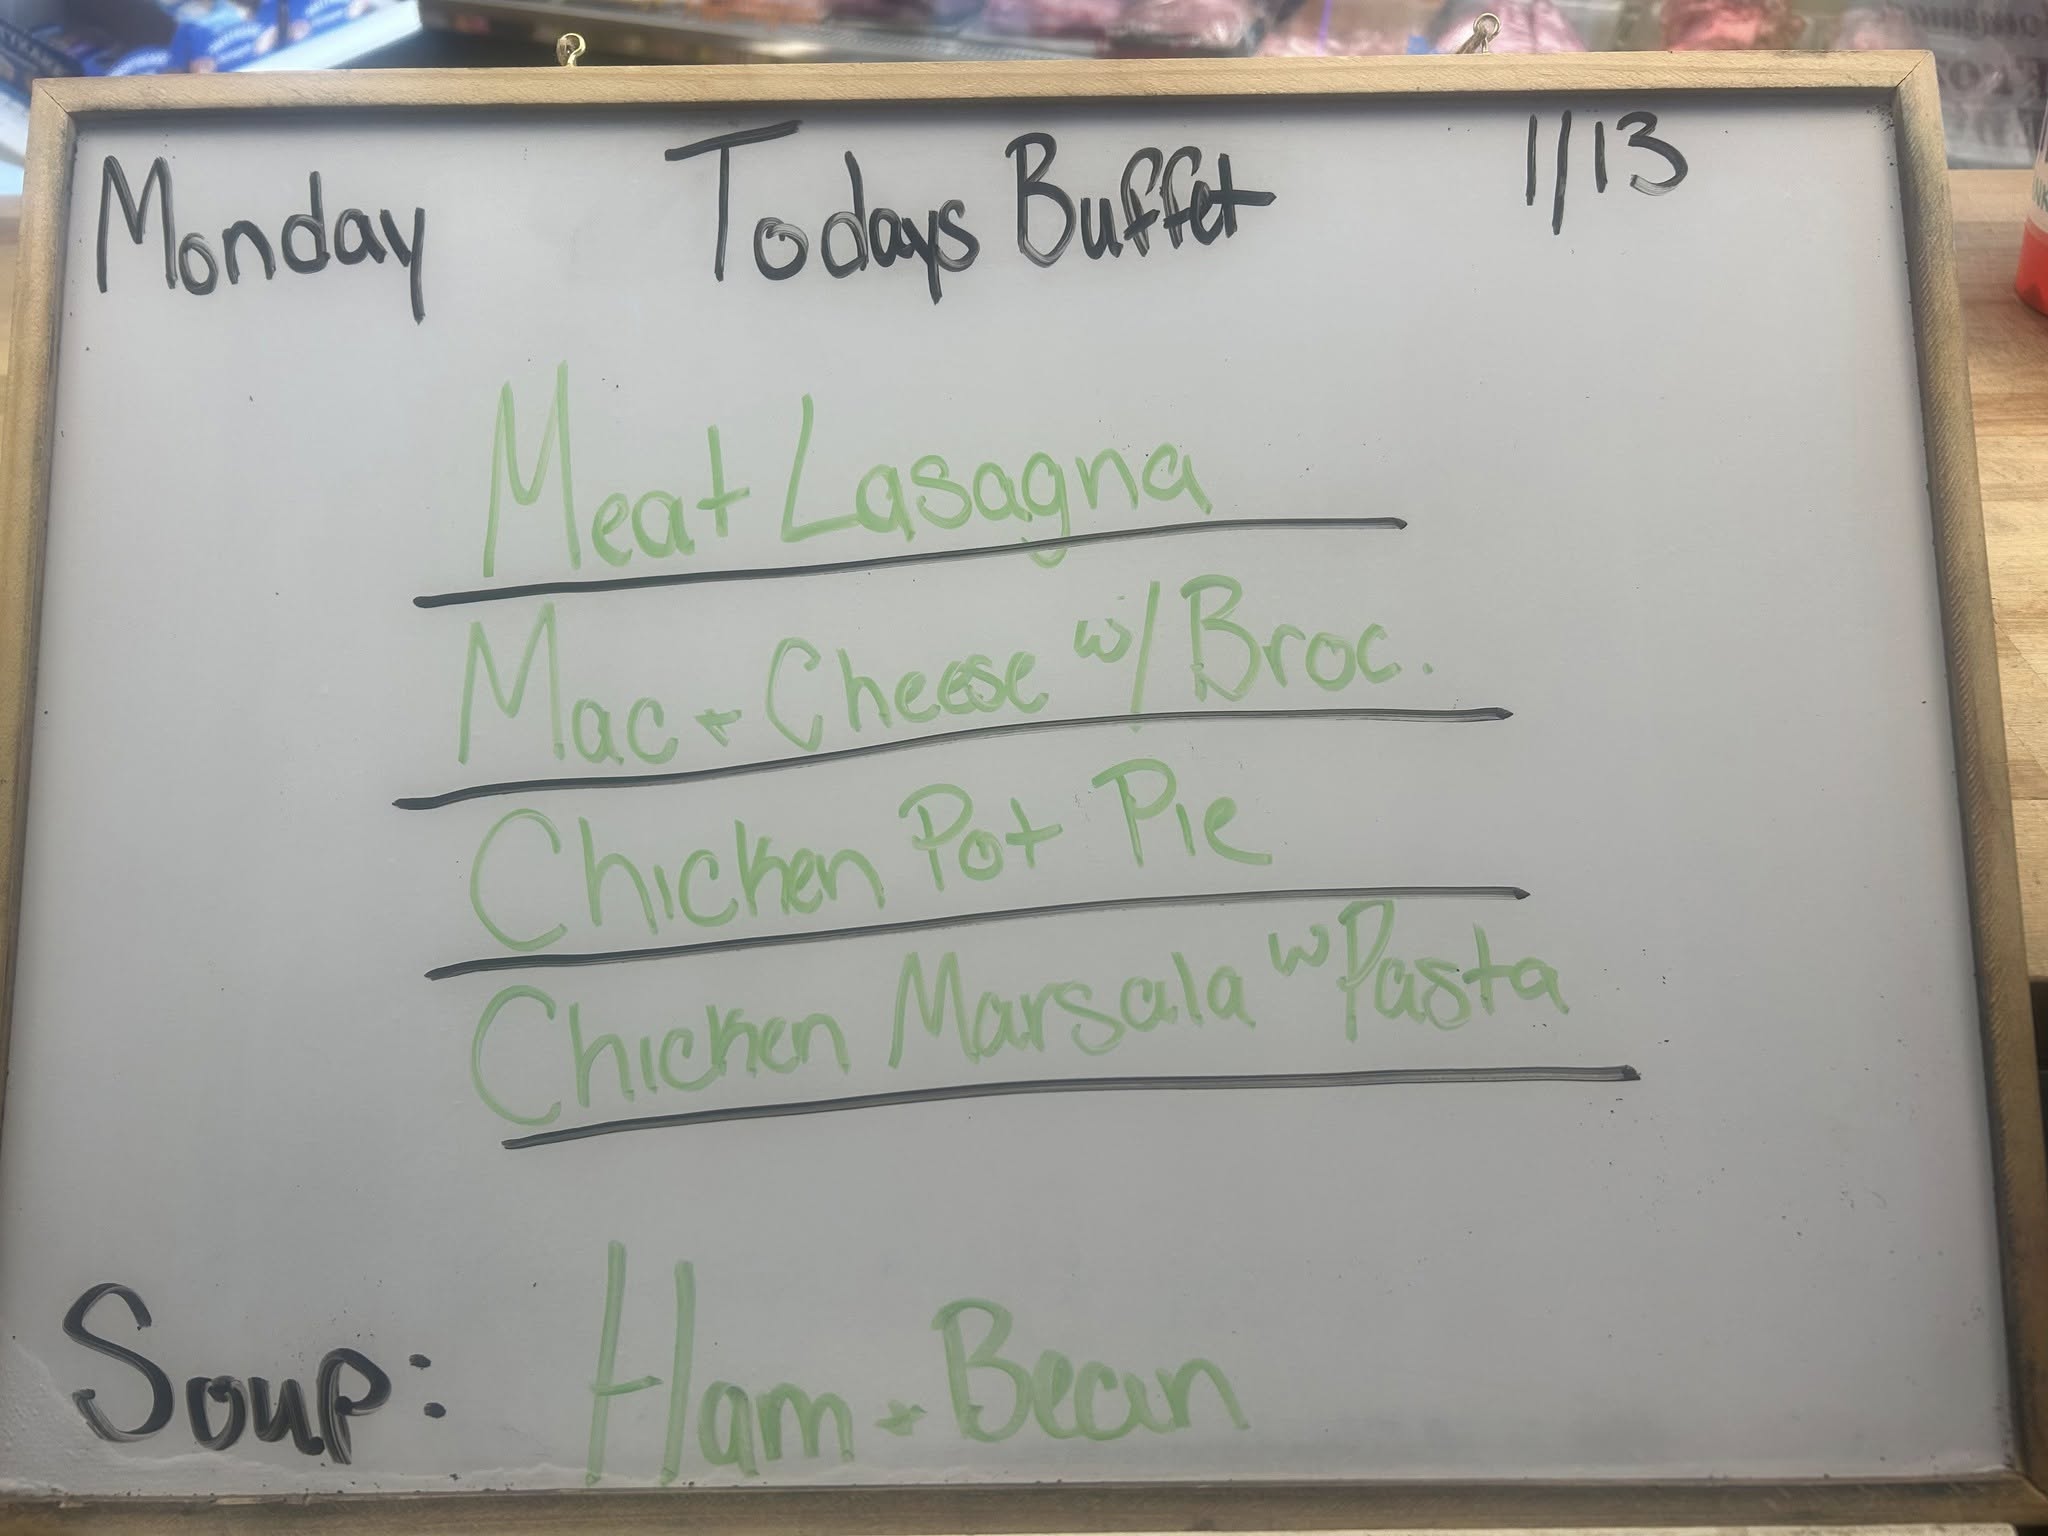 Monday Todays Buffet 1/13
Meat Lasagna
Mac + Cheese w/ Broc.
Chicken Pot Pie
Chicken Marsala w Pasta
Soup: Ham + Bean